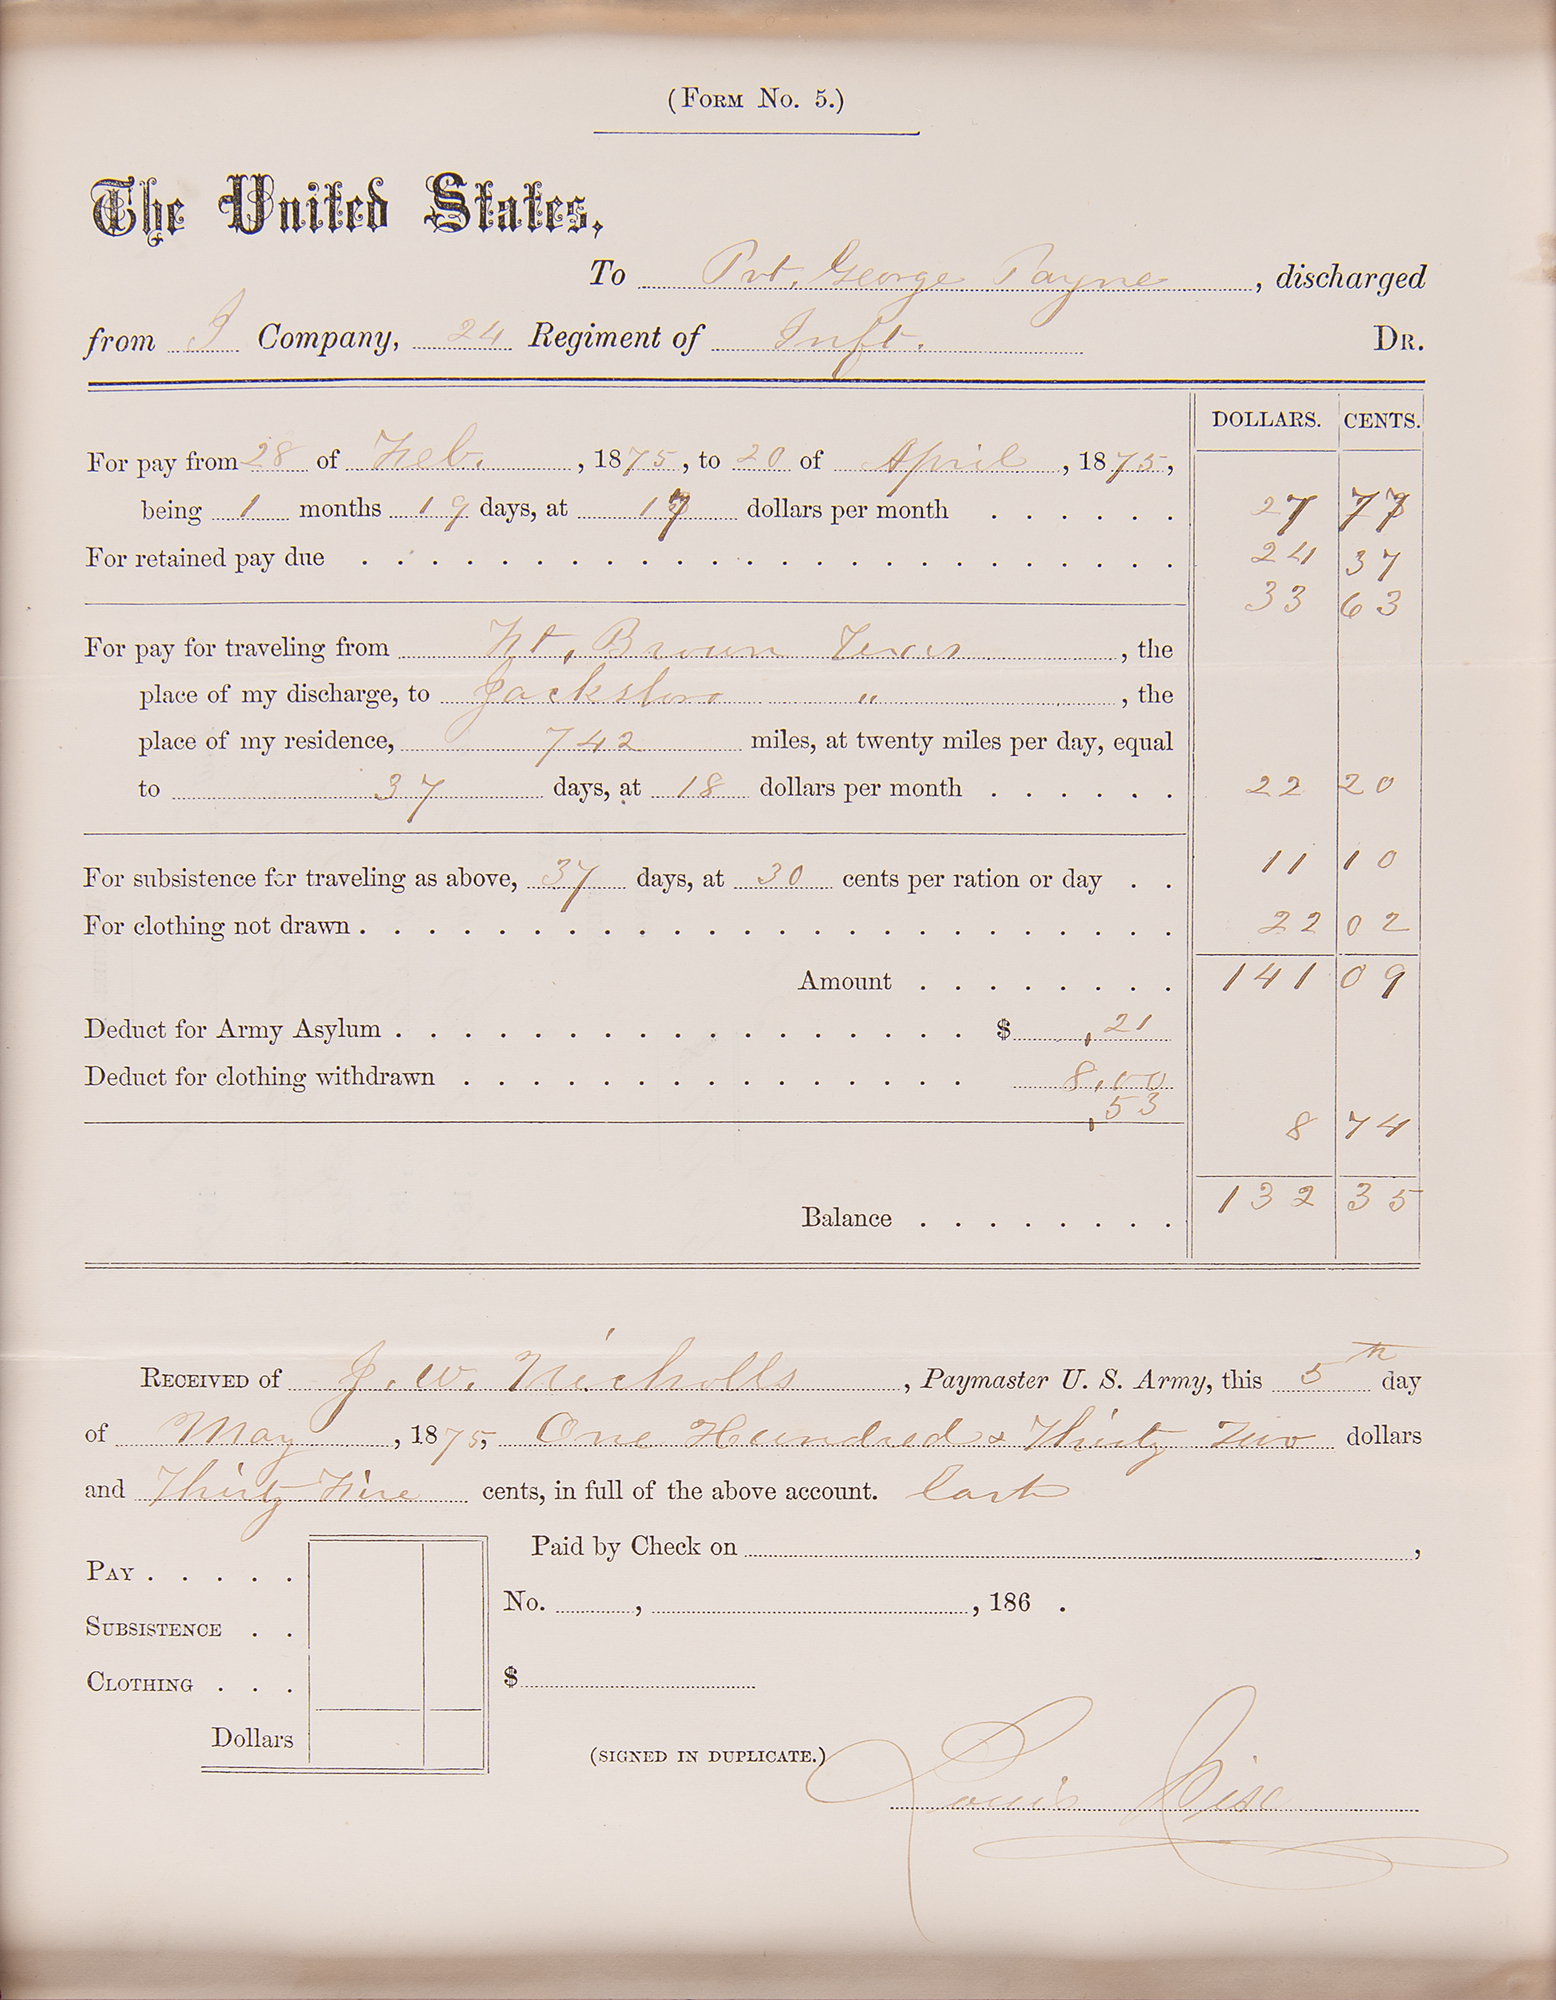 (FORM No. 5.)
The United States,
To Pvt. George Payne, discharged
from I Company, 24 Regiment of Inft. DR.
DOLLARS. CENTS.
For pay from 28 of Feb., 1875, to 20 of April, 1875,
being 1 months 19 days, at 17 dollars per month . . . . . . 27 77
For retained pay due . . . . . . . . . . . . . . . . . . . . . . . . 24 37
33 63
For pay for traveling from Ft. Brown Texas, the
place of my discharge, to Jacksboro ", the
place of my residence, 742 miles, at twenty miles per day, equal
to 37 days, at 18 dollars per month . . . . . . 22 20
For subsistence for traveling as above, 37 days, at 30 cents per ration or day . . 11 10
For clothing not drawn . . . . . . . . . . . . . . . . . . . . . . . . 22 02
Amount . . . . . . . . 141 09
Deduct for Army Asylum . . . . . . . . . . . . . . . . . $ .21
Deduct for clothing withdrawn . . . . . . . . . . . . . . 8.00
.53
8 74
Balance . . . . . . . . 132 35
RECEIVED of J. W. Nicholls, Paymaster U. S. Army, this 5th day
of May, 1875, One Hundred & Thirty Two dollars
and Thirty Five cents, in full of the above account.
Paid by Check on ,
PAY . . . . .
No. , , 186 .
SUBSISTENCE . .
CLOTHING . . .
$
Dollars
(SIGNED IN DUPLICATE.)
Louis